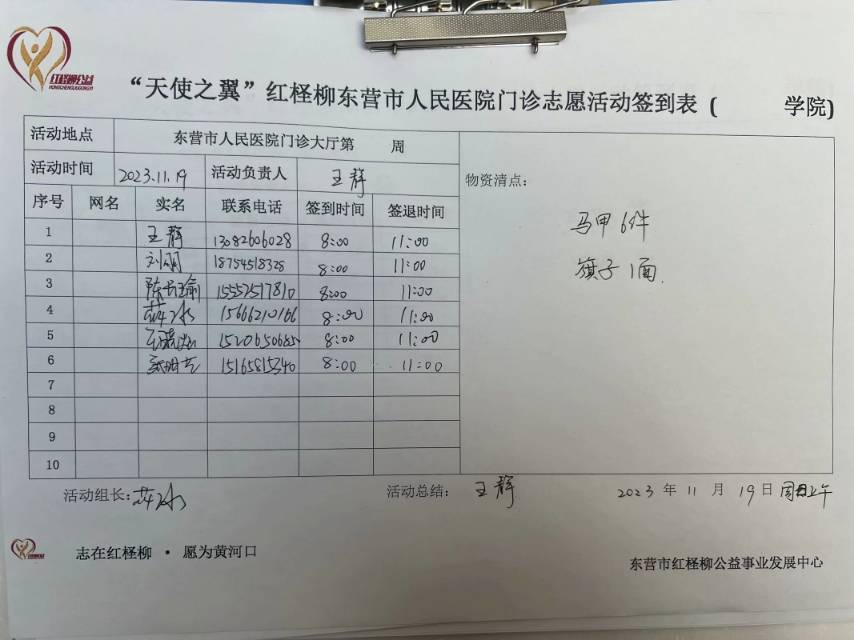 红柽柳公益
HONGCHENGLIUGONGYI
“天使之翼”红柽柳东营市人民医院门诊志愿活动签到表（　　　学院）
活动地点 东营市人民医院门诊大厅第　　周
活动时间 2023.11.19 活动负责人 王静
序号 网名 实名 联系电话 签到时间 签退时间
1 王静 13082606028 8:00 11:00
2 刘明 18754518328 8:00 11:00
3 15552517810 8:00 11:00
4 薛冰 15666210166 8:00 11:00
5 1520650685 8:00 11:00
6 15165815340 8:00 11:00
7
8
9
10
物资清点：
马甲6件
旗子1面
活动组长：薛冰 活动总结： 王静 2023 年 11 月 19 日 周日上午
志在红柽柳 · 愿为黄河口
东营市红柽柳公益事业发展中心